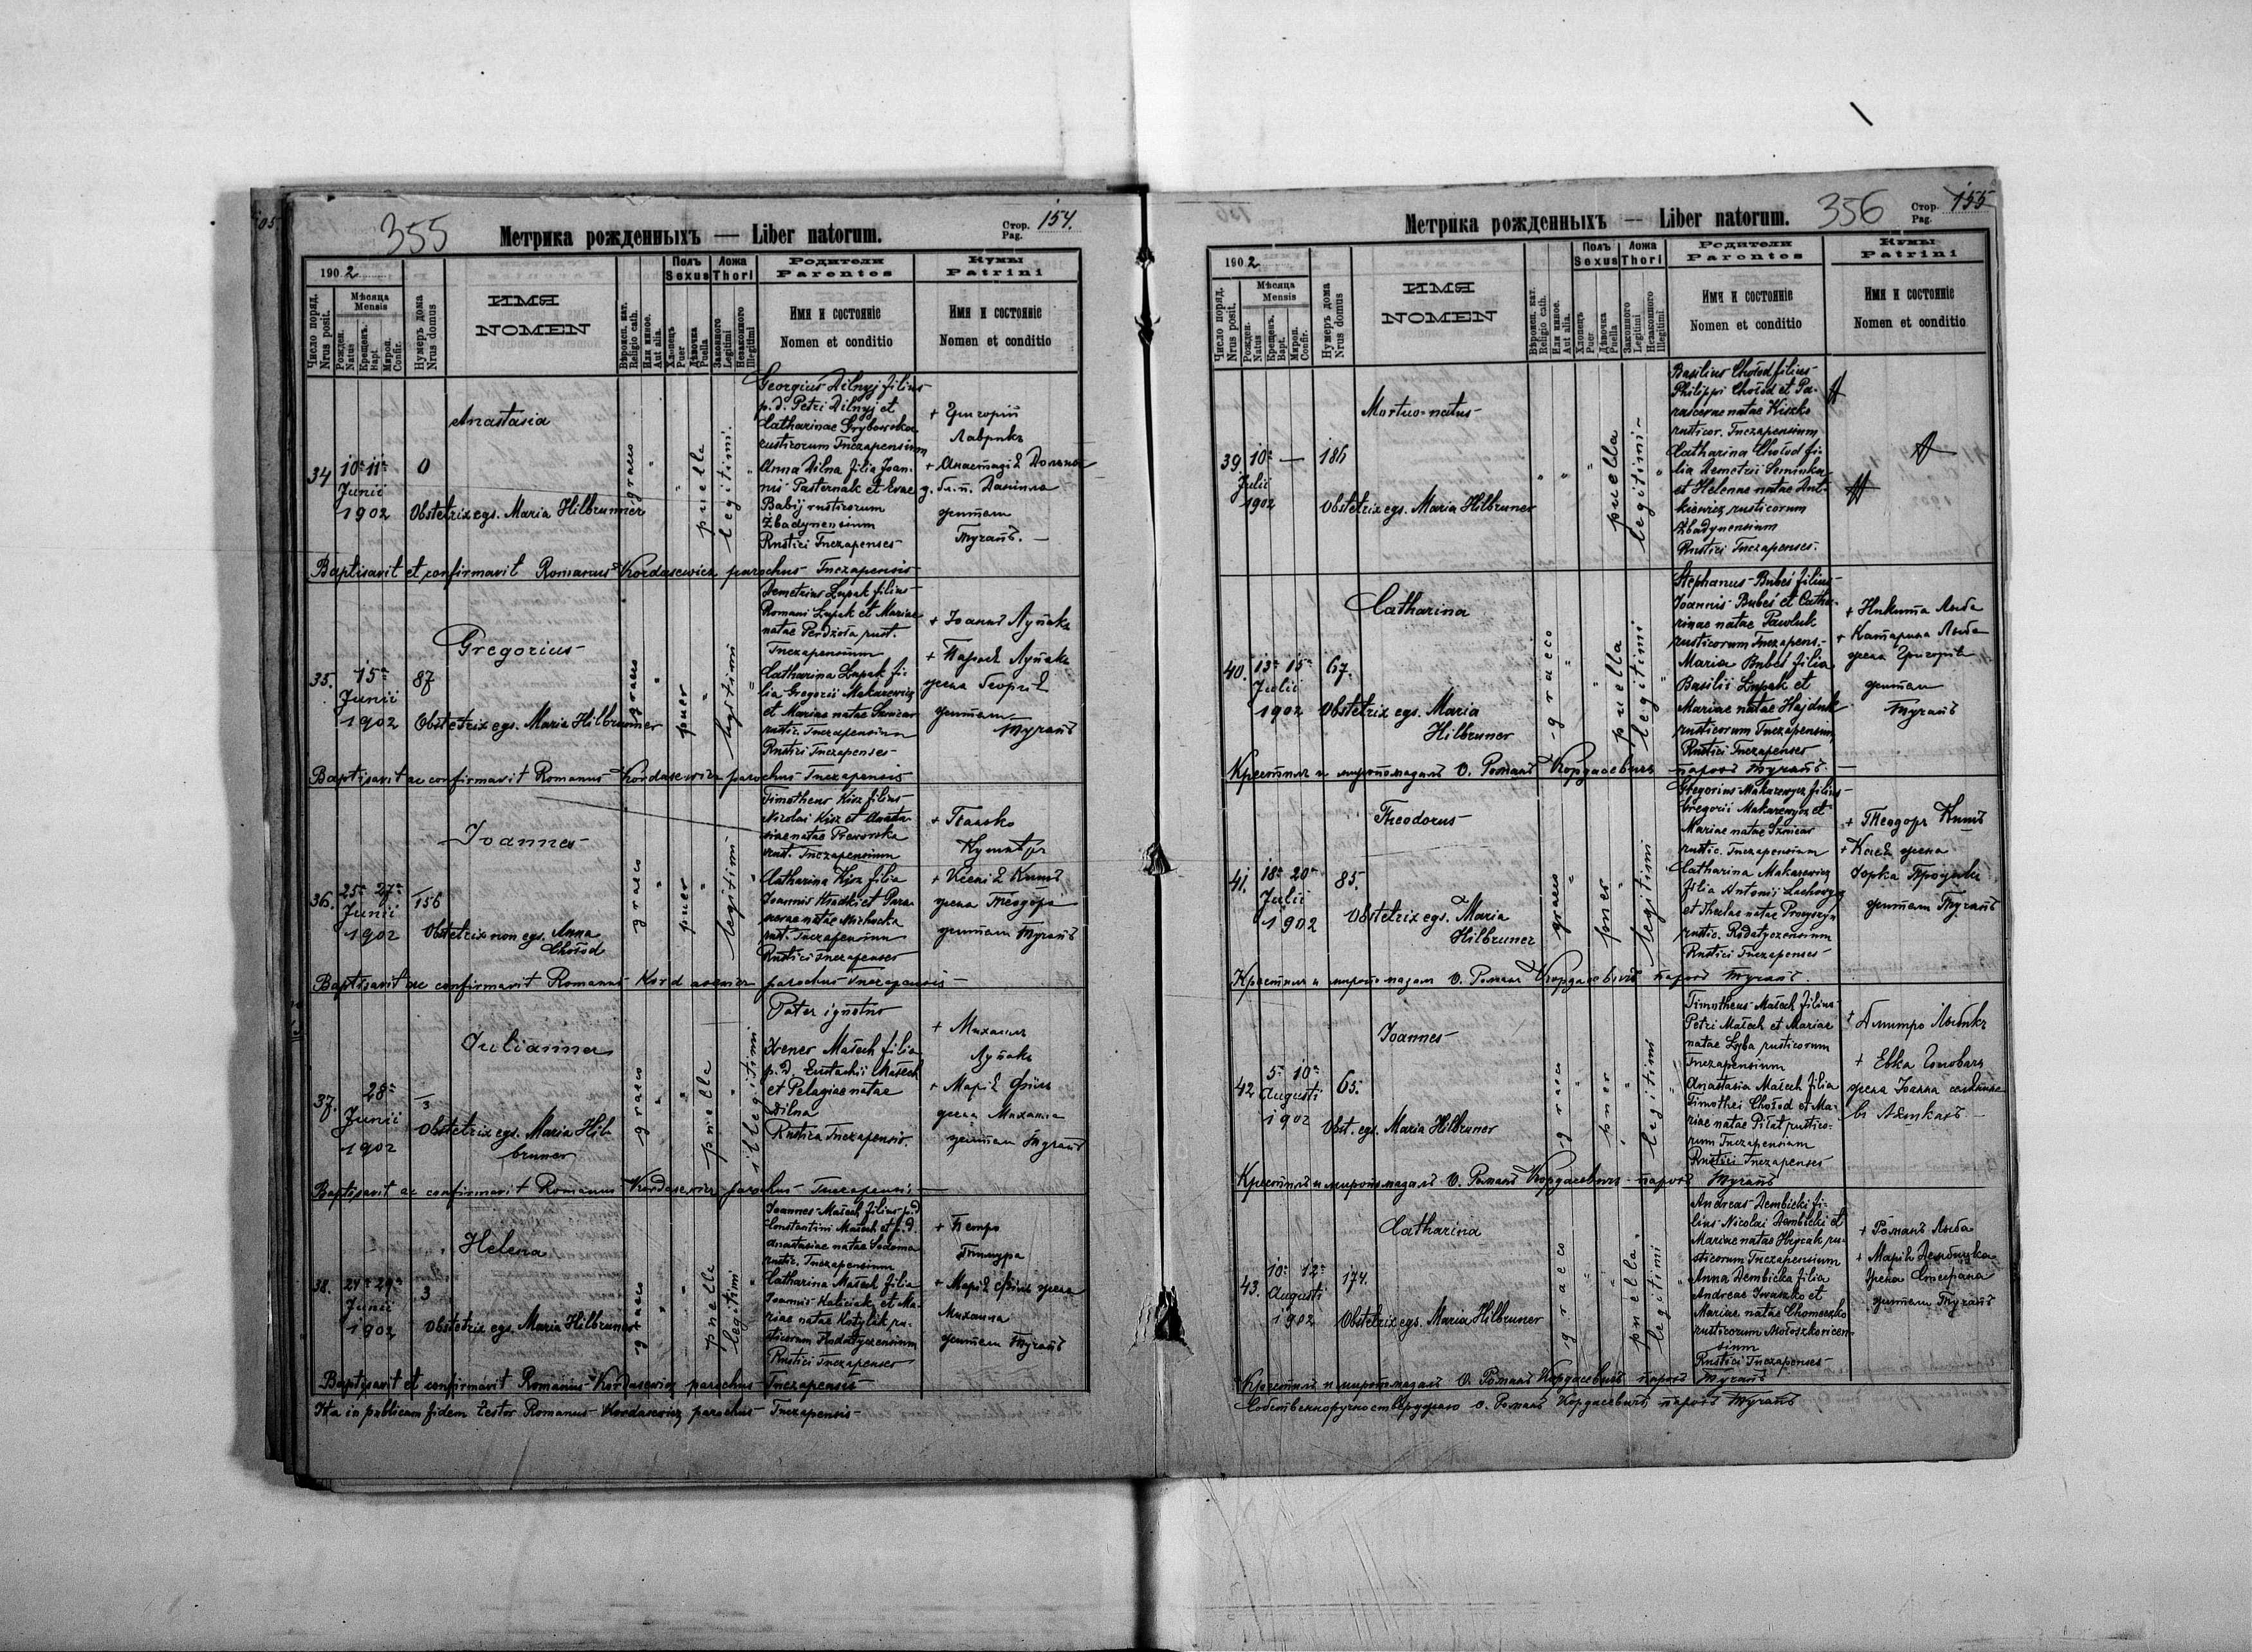 355
Метрика рожденныхъ — Liber natorum.
Стор. Pag. 154.
190 2
Число поряд. Nrus posit.
Мѣсяца Mensis
Рожден. Natus
Крещенъ. Bapt.
Мѵроп. Confir.
Нумеръ дома Nrus domus
ИМЯ NOMEN
Вѣроисп. кат. Religio cath.
Или иное. Aut alia.
Полъ Sexus
Хлопецъ Puer
Дѣвочка Puella
Ложа Thori
Законного Legitimi
Незаконного Illegitimi
Родители Parentes
Имя и состояніе
Nomen et conditio
Кумы Patrini
Имя и состояніе
Nomen et conditio
34
10a 11a
Junii
1902
0
Anastasia
Obstetrix egs. Maria Hilbrunner
graeco
puella
legitimi
Georgius Dilnyj filius
p. d. Petri Dilnyj et
Catharinae Grybowska
rusticorum Tuczapensium
Anna Dilna filia Joan-
nis Pasternak et Evae
Babij rusticorum
Żbadynensium
Rustici Tuczapenses
+ Григорій
Лаврикъ
+ Анастазія
жител
Тучапъ. —
Baptisavit et confirmavit Romanus Kordasewicz parochus Tuczapensis
35.
15a
Junii
1902
87
Gregorius
Obstetrix egs. Maria Hilbrunner
graeco
puer
legitimi
Demetrius Łupak filius
Romani Łupak et Mariae
natae Perdzioła rust.
Tuczapensium
Catharina Łupak fi-
lia Gregorii Makarewicz
et Mariae natae Szwicar
rustic. Tuczapensium
Rustici Tuczapenses
+ Іоаннъ Лупакъ
+ Параск Лупакъ
жена Георгія
жител
Тучапъ
Baptisavit ac confirmavit Romanus Kordasewicz parochus Tuczapensis
36.
25a 27a
Junii
1902
156
Joannes
Obstetrix non egs. Anna
Chołod
graeco
puer
legitimi
Timotheus Kisz filius
Nicolai Kisz et Anasta-
siae natae Preworska
rust. Tuczapensium
Catharina Kisz filia
Joannis Hładki et Para-
scevae natae Michacka
rust. Tuczapensium
Rustici Tuczapenses
+ Панько
+ Ксенія Кишъ
жена Теодора
жител Тучапъ
Baptisavit ac confirmavit Romanus Kordasewicz parochus Tuczapensis
37.
28a
Junii
1902
3
Julianna
Obstetrix egs. Maria Hil-
bruner
graeco
puella
illegitimi
Pater ignotus
Xenes Małech filia
p. d. Eustachii Małech
et Pelagiae natae
Dilna
Rustica Tuczapensis
+ Михаилъ
Лупакъ
+ Марія Філь
жена Михаила
жител Тучапъ
Baptisavit ac confirmavit Romanus Kordasewicz parochus Tuczapensis
38.
27a 29a
Junii
1902
3
Helena
Obstetrix egs. Maria Hilbruner
graeco
puella
legitimi
Joannes Małech filius p. d.
Constantini Małech et p. d.
Anastasiae natae Sodoma
rustic. Tuczapensium
Catharina Małech filia
Joannis Kaliciak et Ma-
riae natae Kotylik ru-
sticorum Rodatyczensium
Rustici Tuczapenses
+ Петро
+ Марія Філь жена
Михаила
жител Тучапъ
Baptisavit et confirmavit Romanus Kordasewicz parochus Tuczapensis
Ita in publicam fidem testor Romanus Kordasewicz parochus Tuczapensis
Метрика рожденныхъ — Liber natorum.
356
Стор. Pag. 155
190 2
Число поряд. Nrus posit.
Мѣсяца Mensis
Рожден. Natus
Крещенъ. Bapt.
Мѵроп. Confir.
Нумеръ дома Nrus domus
ИМЯ NOMEN
Вѣроисп. кат. Religio cath.
Или иное. Aut alia.
Полъ Sexus
Хлопецъ Puer
Дѣвочка Puella
Ложа Thori
Законного Legitimi
Незаконного Illegitimi.
Родители Parentes
Имя и состояніе
Nomen et conditio
Кумы Patrini
Имя и состояніе
Nomen et conditio
39.
10a —
Julii
1902
186
Mortuo-natus
Obstetrix egs. Maria Hilbruner
puella
legitimi
Basilius Chołod filius
Philippi Chołod et Pa-
rascevae natae Kiszko
rusticor. Tuczapensium
Catharina Chołod fi-
lia Demetrii Seminka
et Helenae natae Dut-
kiewicz rusticorum
Żbadynensium
Rustici Tuczapenses.
40.
13a 15a
Julii
1902
67.
Catharina
Obstetrix egs. Maria
Hilbruner
graeco
puella
legitimi
Stephanus Bubeś filius
Joannis Bubeś et Catha-
rinae natae Pawluk
rusticorum Tuczapens.
Maria Bubeś filia
Basilii Łupak et
Mariae natae Hajduk
rusticorum Tuczapensium
Rustici Tuczapenses
+ Никита Лыба
+ Катарина Лыба
жена Григорія
жители
Тучапъ
Крестилъ и миропомазалъ О. Романъ Кордасевичъ парохъ Тучапъ. —
41.
18a 20a
Julii
1902
85.
Theodorus
Obstetrix egs. Maria
Hilbruner
graeco
puer
legitimi
Gregorius Makarewycz filius
Gregorii Makarewycz et
Mariae natae Szwicar
rustic. Tuczapensium
Catharina Makarewicz
filia Antonii Lachowycz
et Theclae natae Procyszyn
rustic. Rodatyczensium
Rustici Tuczapenses
+ Теодоръ Кишъ
+ Касѣ жена
жители Тучапъ
Крестилъ и миропомазалъ О. Романъ Кордасевичъ парохъ Тучапъ.
42
5a 10a
Augusti
1902
65.
Joannes
Obst. egs. Maria Hilbruner
graeco
puer
legitimi
Timotheus Małech filius
Petri Małech et Mariae
natae Łyba rusticorum
Tuczapensium
Anastasia Małech filia
Timothei Chołod et Ma-
riae natae Piłat rustico-
rum Tuczapensium
Rustici Tuczapenses
+ Дмитро Лыбикъ
+ Евка
жена Іоанна
Крестилъ и миропомазалъ О. Романъ Кордасевичъ парохъ Тучапъ
43.
10a 12a
Augusti
1902
174.
Catharina
Obstetrix egs. Maria Hilbruner
graeco
puella
legitimi
Andreas Dembicki fi-
lius Nicolai Dembicki et
Mariae natae Hrycak ru-
sticorum Tuczapensium
Anna Dembicka filia
Andreae Iwaszko et
Mariae natae Chomeczko
rusticorum Mołoszkowicen-
sium
Rustici Tuczapenses
+ Романъ Лыба
+ Марія Дембицка
жена Стефана
жители Тучапъ
Крестилъ и миропомазалъ О. Романъ Кордасевичъ парохъ Тучапъ
Собственноручно стверджаю о. Романъ Кордасевичъ парохъ Тучапъ